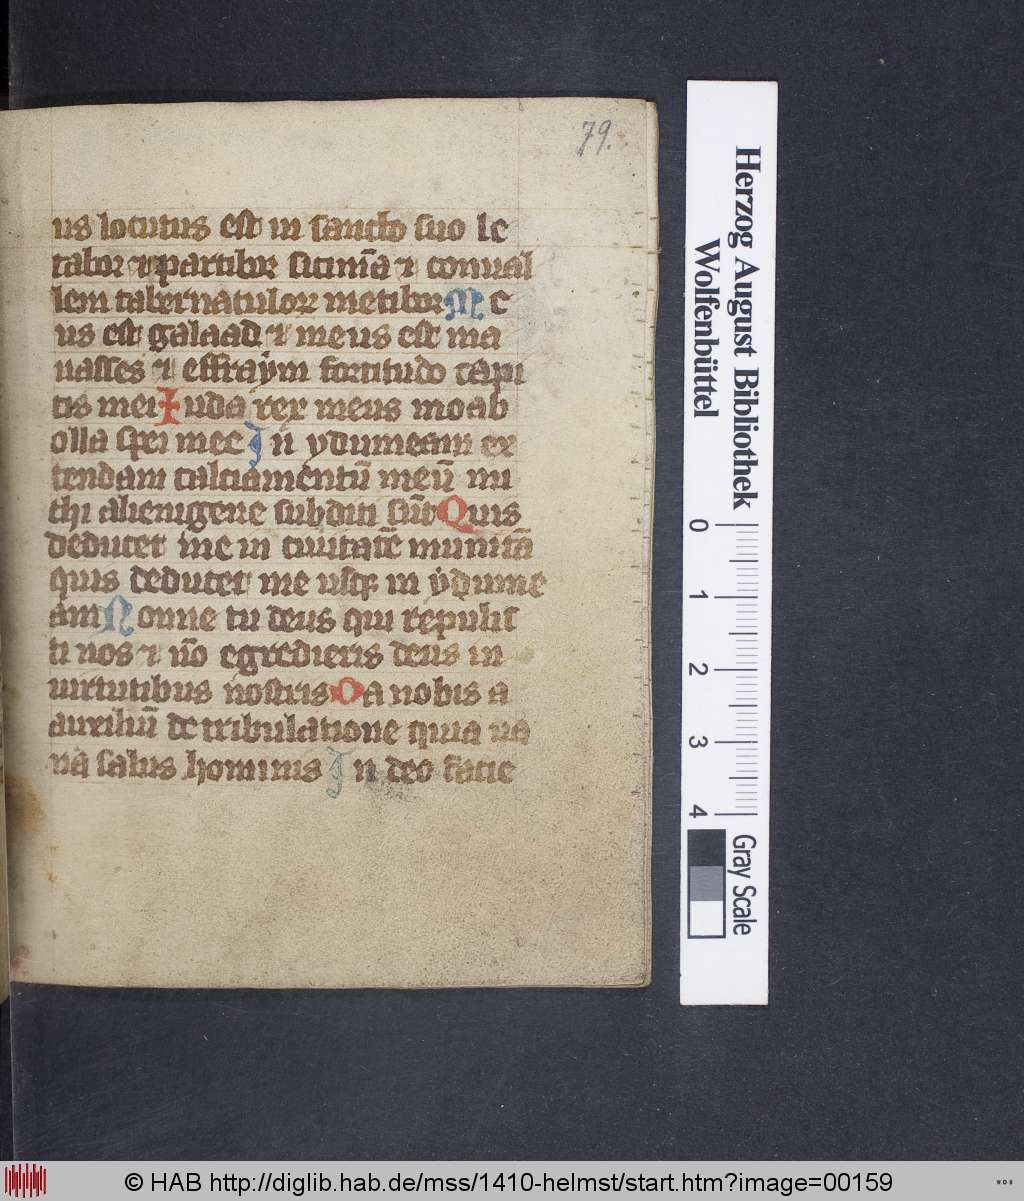 79.
us locutus est in sancto suo le
tabor et partibor sicimā et conual
lem tabernaculorꝝ metibor Me
us est galaad et meus est ma
nasses et effraym fortitudo capi
tis mei Iuda rex meus moab
olla spei mee In ydumeam ex
tendam calciamentū meū mi
chi alienigene subditi sūt Quis
deducet me in ciuitatē munitā
quis deducet me usqꝫ in ydume
am Nonne tu deus qui repulis
ti nos et nō egredieris deus in
uirtutibus nostris Da nobis a
auxiliū de tribulatione quia ua
na salus hominis In deo facie
Herzog August Bibliothek
Wolfenbüttel
0 1 2 3 4
Gray Scale
© HAB http://diglib.hab.de/mss/1410-helmst/start.htm?image=00159